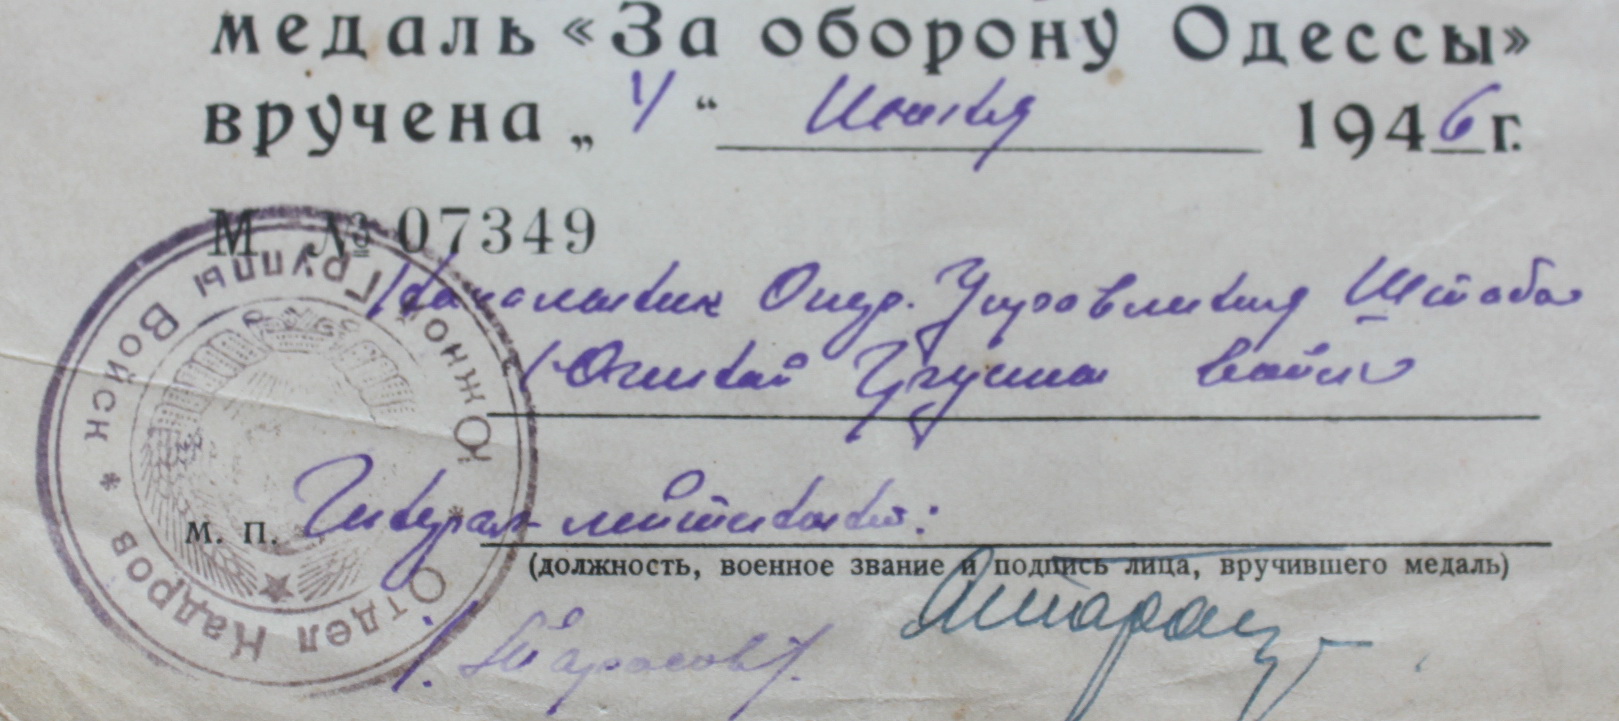 медаль «За оборону Одессы»
вручена „4“ Июня 1946 г.
М № 07349
Начальник Опер. Управления Штаба
Южной Группы войск
Генерал-лейтенант:
м. п.
(должность, военное звание и подпись лица, вручившего медаль)
/Тарасов/.
Отдел Кадров * Южной Группы Войск *